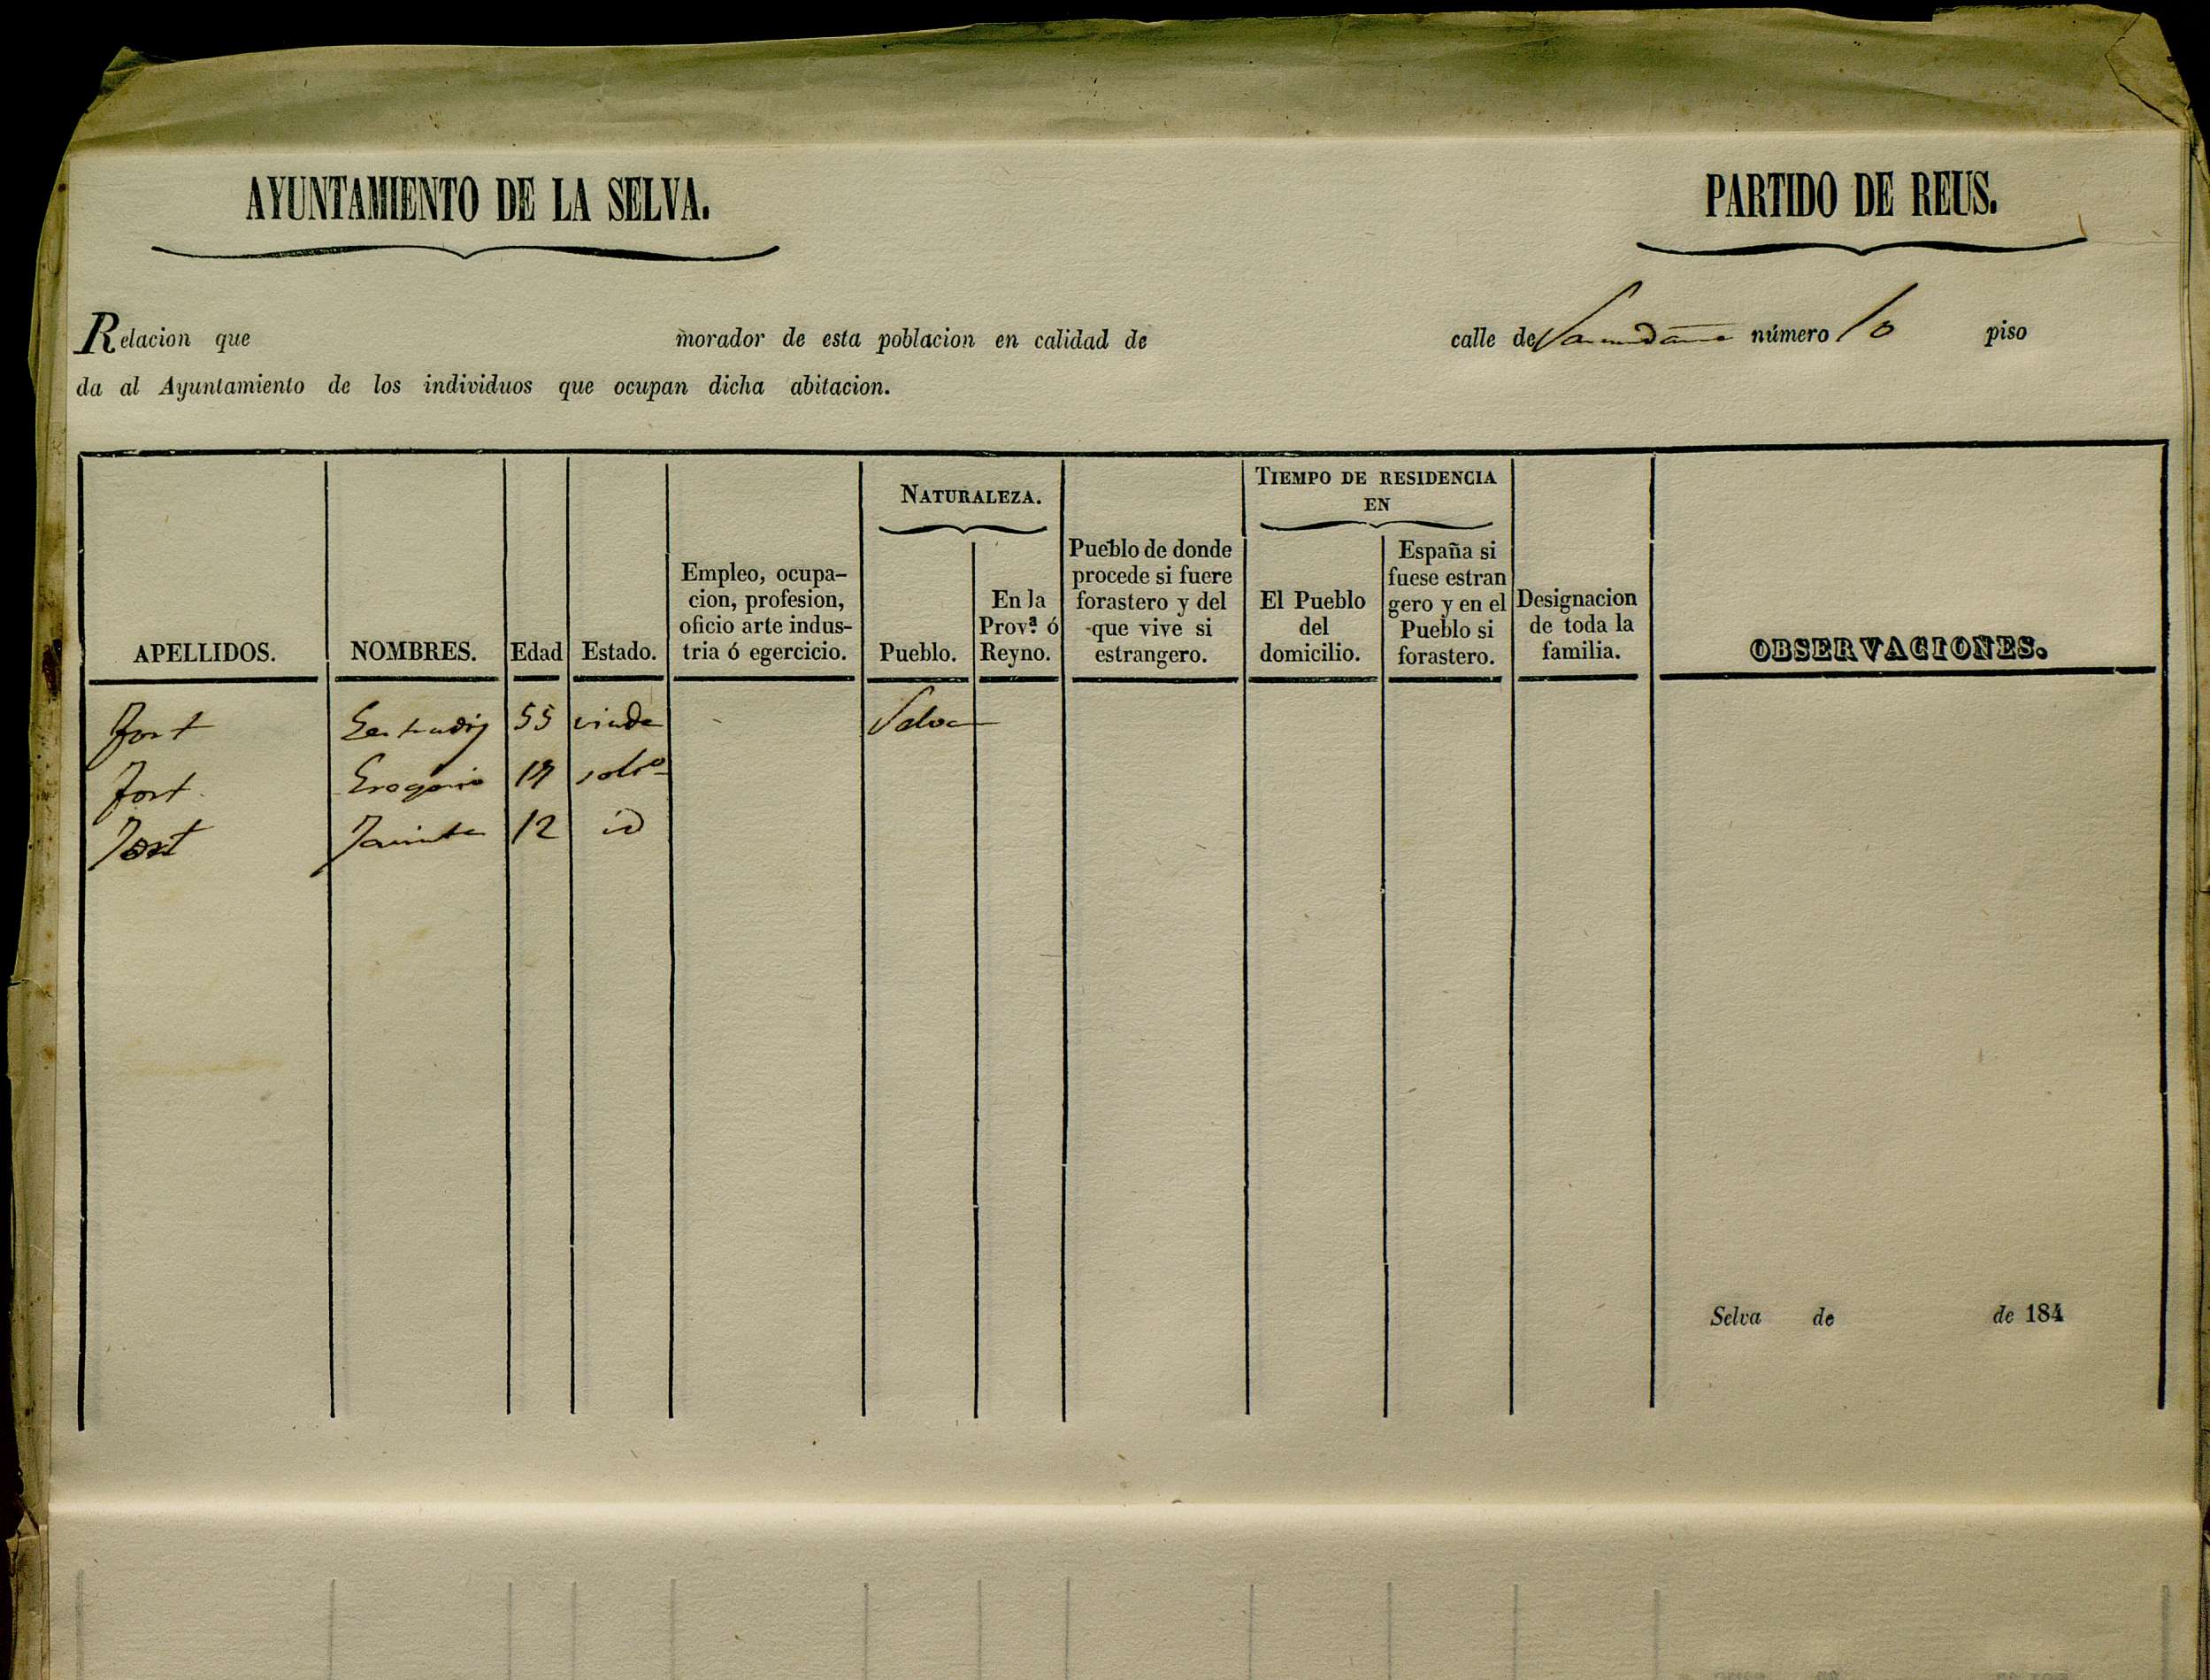 AYUNTAMIENTO DE LA SELVA.
PARTIDO DE REUS.
Relacion que morador de esta poblacion en calidad de calle de número 10 piso
da al Ayuntamiento de los individuos que ocupan dicha abitacion.
APELLIDOS.
NOMBRES.
Edad
Estado.
Empleo, ocupa-
cion, profesion,
oficio arte indus-
tria ó egercicio.
NATURALEZA.
Pueblo.
En la
Prov.ª ó
Reyno.
Pueblo de donde
procede si fuere
forastero y del
que vive si
estrangero.
TIEMPO DE RESIDENCIA
EN
El Pueblo
del
domicilio.
España si
fuese estran
gero y en el
Pueblo si
forastero.
Designacion
de toda la
familia.
OBSERVACIONES.
Fort Gertrudis 55 viuda Selva
Fort 19 solt.º
Fort 12 id
Selva de de 184